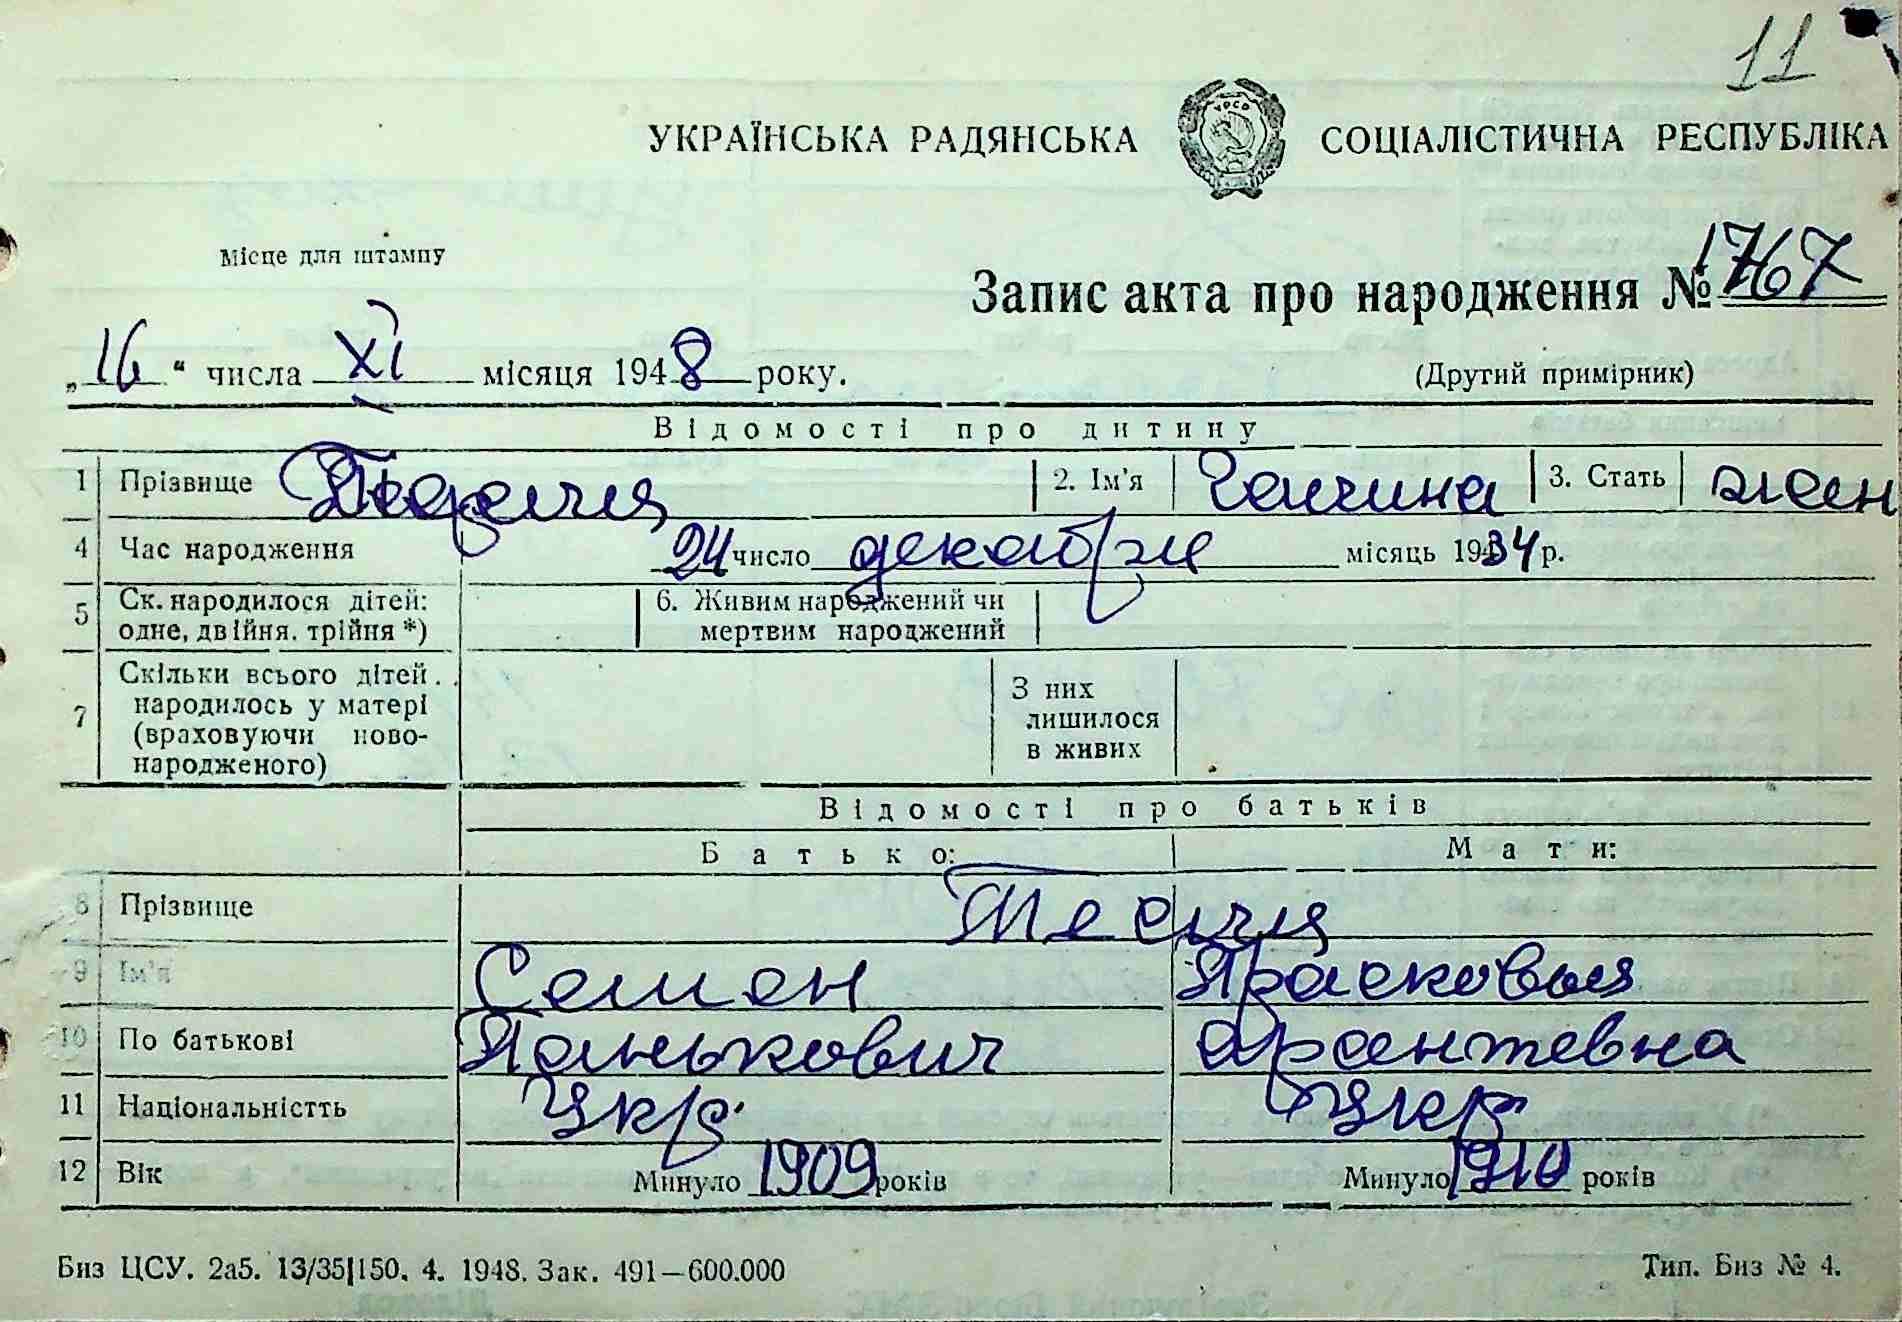 11
УКРАЇНСЬКА РАДЯНСЬКА СОЦІАЛІСТИЧНА РЕСПУБЛІКА
УРСР
Місце для штампу
Запис акта про народження № 1767
„16“ числа XI місяця 1948 року.
(Другий примірник)
Відомості про дитину
1 Прізвище 2. Ім'я Галина 3. Стать жен
4 Час народження 24 число декабря місяць 1934 р.
5 Ск. народилося дітей: одне, двійня, трійня *) 6. Живим народжений чи мертвим народжений
7 Скільки всього дітей народилось у матері (враховуючи ново-народженого) З них лишилося в живих
Відомості про батьків
Батько: Мати:
8 Прізвище
9 Ім'я Семен Прасковья
10 По батькові Панькович
11 Національністть Укр. Укр
12 Вік Минуло 1909 років Минуло 1910 років
Биз ЦСУ. 2а5. 13/35|150. 4. 1948. Зак. 491—600.000 Тип. Биз № 4.